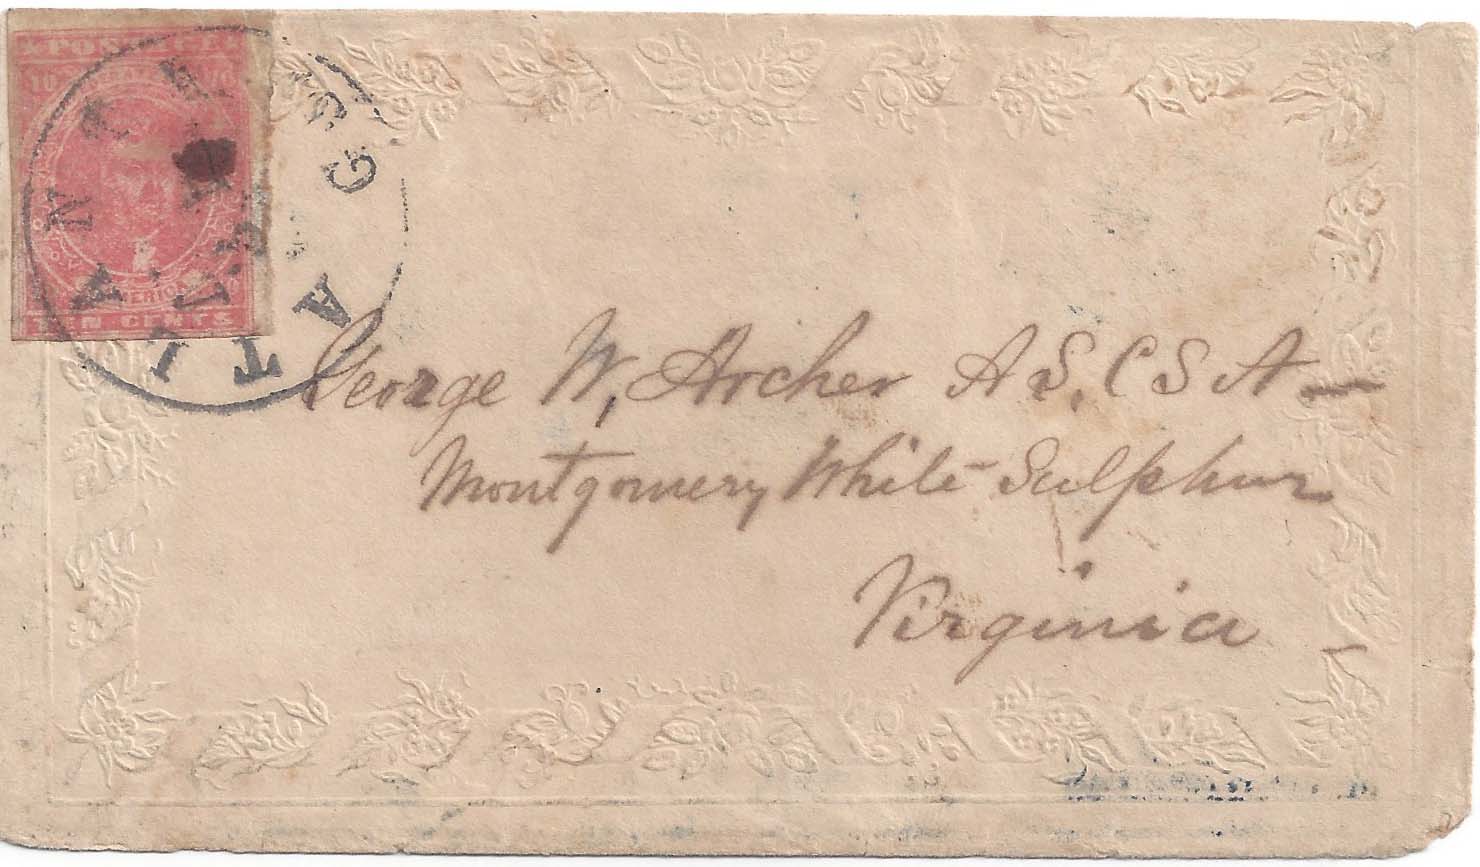 POSTAGE
10
TEN CENTS
ATLANTA
George W, Archer A S, C S A –
Montgomery White Sulphur
Virginia